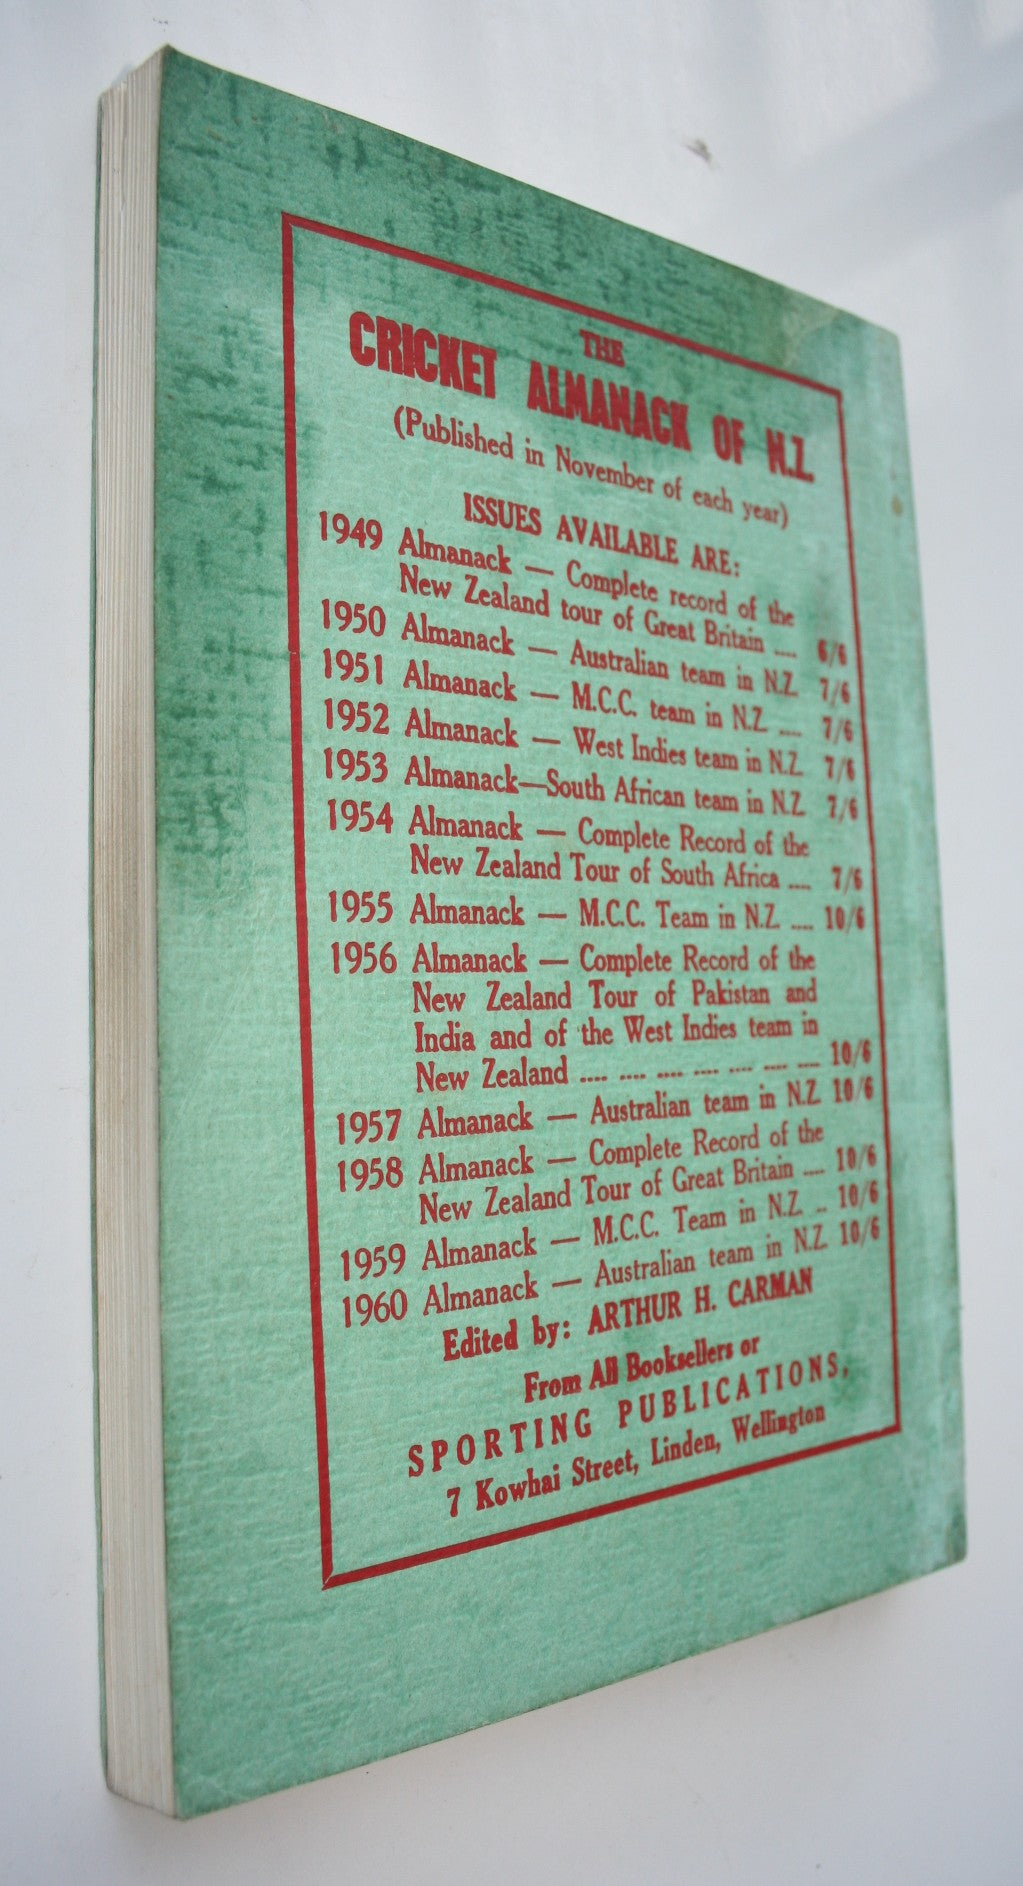 THE
CRICKET ALMANACK OF N.Z.
(Published in November of each year)
ISSUES AVAILABLE ARE:
1949 Almanack — Complete record of the
New Zealand tour of Great Britain .... 6/6
1950 Almanack — Australian team in N.Z. 7/6
1951 Almanack — M.C.C. team in N.Z. .... 7/6
1952 Almanack — West Indies team in N.Z. 7/6
1953 Almanack—South African team in N.Z. 7/6
1954 Almanack — Complete Record of the
New Zealand Tour of South Africa .... 7/6
1955 Almanack — M.C.C. Team in N.Z. .... 10/6
1956 Almanack — Complete Record of the
New Zealand Tour of Pakistan and
India and of the West Indies team in
New Zealand .... .... .... .... .... .... .... 10/6
1957 Almanack — Australian team in N.Z. 10/6
1958 Almanack — Complete Record of the
New Zealand Tour of Great Britain .... 10/6
1959 Almanack — M.C.C. Team in N.Z. .. 10/6
1960 Almanack — Australian team in N.Z. 10/6
Edited by: ARTHUR H. CARMAN
From All Booksellers or
SPORTING PUBLICATIONS,
7 Kowhai Street, Linden, Wellington